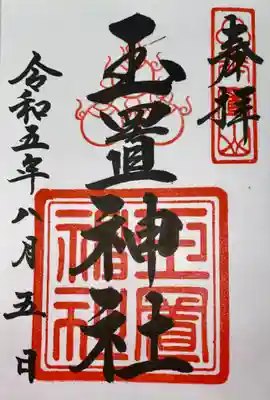 奉拝
玉置神社
玉置神社
令和五年八月五日